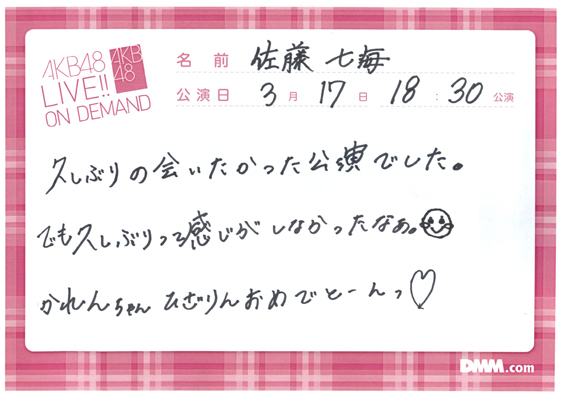 AKB48
LIVE!!
ON DEMAND
AKB
48
名前 佐藤七海
公演日 3月17日 18:30公演
久しぶりの会いたかった公演でした。
でも久しぶりって感じがしなかったなぁ。
かれんちゃん ひざりんおめでとーんっ♡
DMM.com